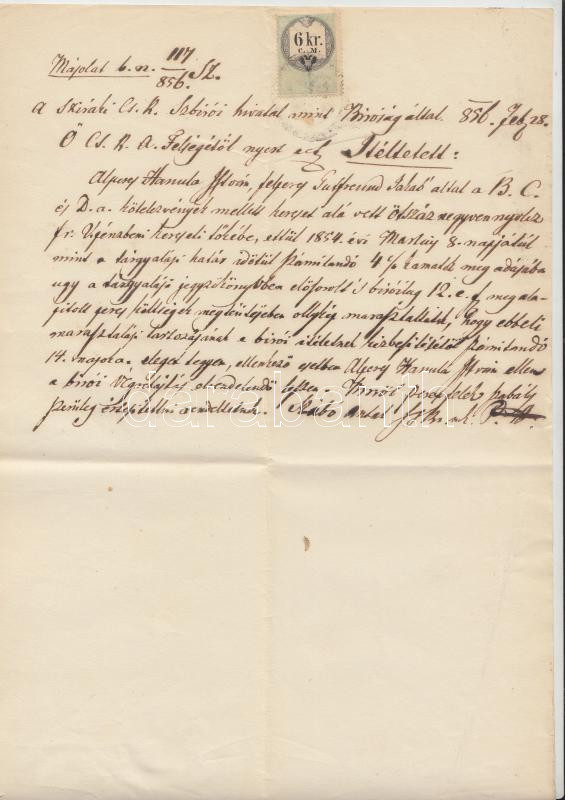 6 kr.
C. M.
Másolat b. n. 117/856. Sz.
A Sziráki Cs. K. Szbirói hivatal mint Biróság által. 856. Feb. 28.
Ő Cs. K. A. Felségétől nyert Itéltetett:
Alperes Hanula István, felperes Gutfreund Jakab által a B. C.
és D. a. kötelezvények mellett kereset alá vett Ötszáz negyven nyolcz
fr. V. pénzbeni kereseti tőkébe, ettül 1854. évi Martius 8. napjátúl
mint a tárgyalási határ időtül számitandó 4 % kamatok meg adásába
ugy a tárgyalási jegyzőkönyvben előforolt 's biróilag 12. e. f. megala-
pitott peres költségek megtérítésében ollykép marasztaltatik, hogy ebbeli
marasztalási tartozásának a birói itéletnek kézbesítésétől számitandó
14. napok a. eleget tegyen, ellenkező esetben Alperes Hanula István ellen
a birói végrehajtás elrendelendő lészen. Miről peres felek szabály
szerüleg értesittetni rendeltetnek. Szabó
darabanth